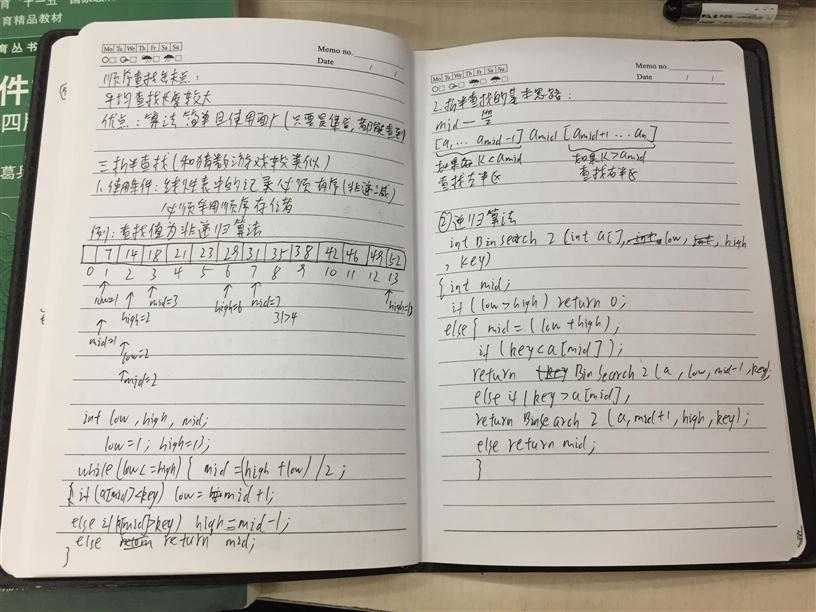 育精品教材
育丛书
件
四版
Mo Tu We Th Fr Sa Su
Memo no.
Date / /
顺序查找缺点:
平均查找长度较大
优点: 算法简单且使用面广
三、折半查找(和猜数游戏较类似)
1.使用条件: 线性表中的记录必须有序(非递减)
必须采用顺序存储
例: 查找值为 非递归算法
7 14 18 21 23 29 31 35 38 42 46 49 52
0 1 2 3 4 5 6 7 8 9 10 11 12 13
low=1 mid=3 high=6 mid=7 high=13
high=2 31>4
mid=1
low=2
mid=2
int low, high, mid;
low=1; high=13;
while(low<=high) { mid=(high+low)/2;
if(a[mid]<key) low=mid+1;
else if(a[mid]>key) high=mid-1;
else return mid;
}
Mo Tu We Th Fr Sa Su
Memo no.
Date / /
2.折半查找的基本思路:
mid
[a1 ... amid-1] amid [amid+1 ... an]
如果 K<amid 如果K>amid
查找左半区 查找右半区
②递归算法
int Binsearch 2 (int a[], low, high
, key)
{ int mid;
if (low>high) return 0;
else{ mid=(low+high);
if (key<a[mid]);
return Binsearch 2(a, low, mid-1, key)
else if(key>a[mid],
return Binsearch 2 (a, mid+1, high, key);
else return mid;
}